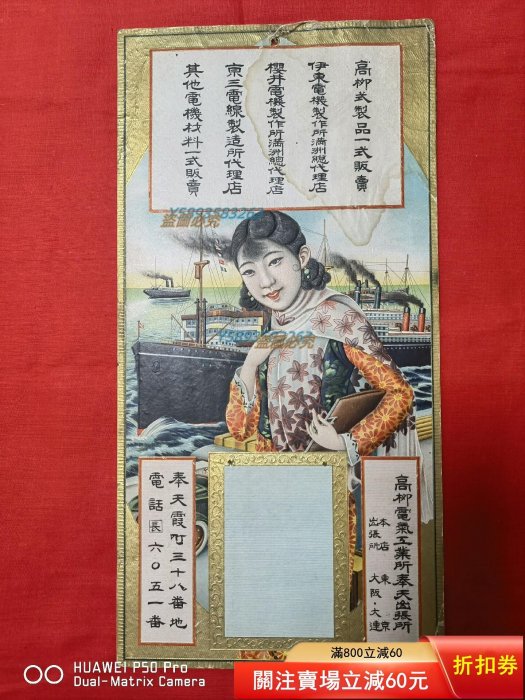 高柳式製品一式販賣
伊東電機製作所滿洲總代理店
櫻井電機製作所滿洲總代理店
京三電線製造所代理店
其他電機材料一式販賣
盗圖必究
盗圖必究
高柳電氣工業所奉天出張所
本店 東京
出張所 大阪・大連
奉天霞町三十八番地
電話 長 六〇五一番
HUAWEI P50 Pro
Dual-Matrix Camera
滿800立減60
關注賣場立減60元
折扣券